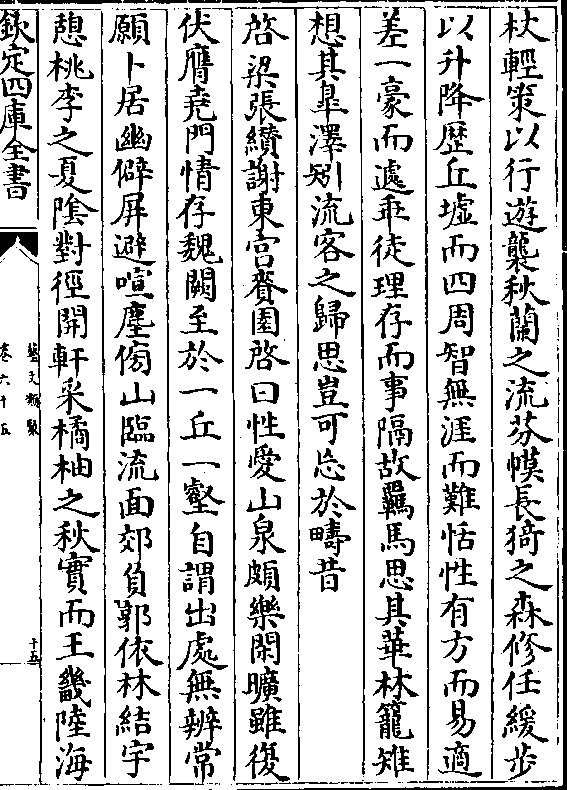 杖輕策以行遊襲秋蘭之流芬幙長猗之森修任緩步
以升降歴丘墟而四周智無涯而難恬性有方而易適
差一豪而遽乖徒理存而事隔故羈馬思其華林籠雉
想其皐澤矧流客之歸思豈可忘於疇昔
啓梁張纘謝東宫賚園啓曰性愛山泉頗樂閑曠雖復
伏膺堯門情存魏闕至於一丘一壑自謂出處無辨常
願卜居幽僻屏避喧塵傍山臨流面郊負郭依林結宇
憩桃李之夏陰對徑開軒采橘柚之秋實而王畿陸海
欽定四庫全書
藝文類聚
卷六十五
十五